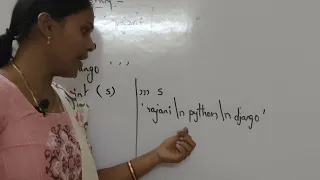 ango '''
int (s)
>>> s
'rajani \n python \n django'